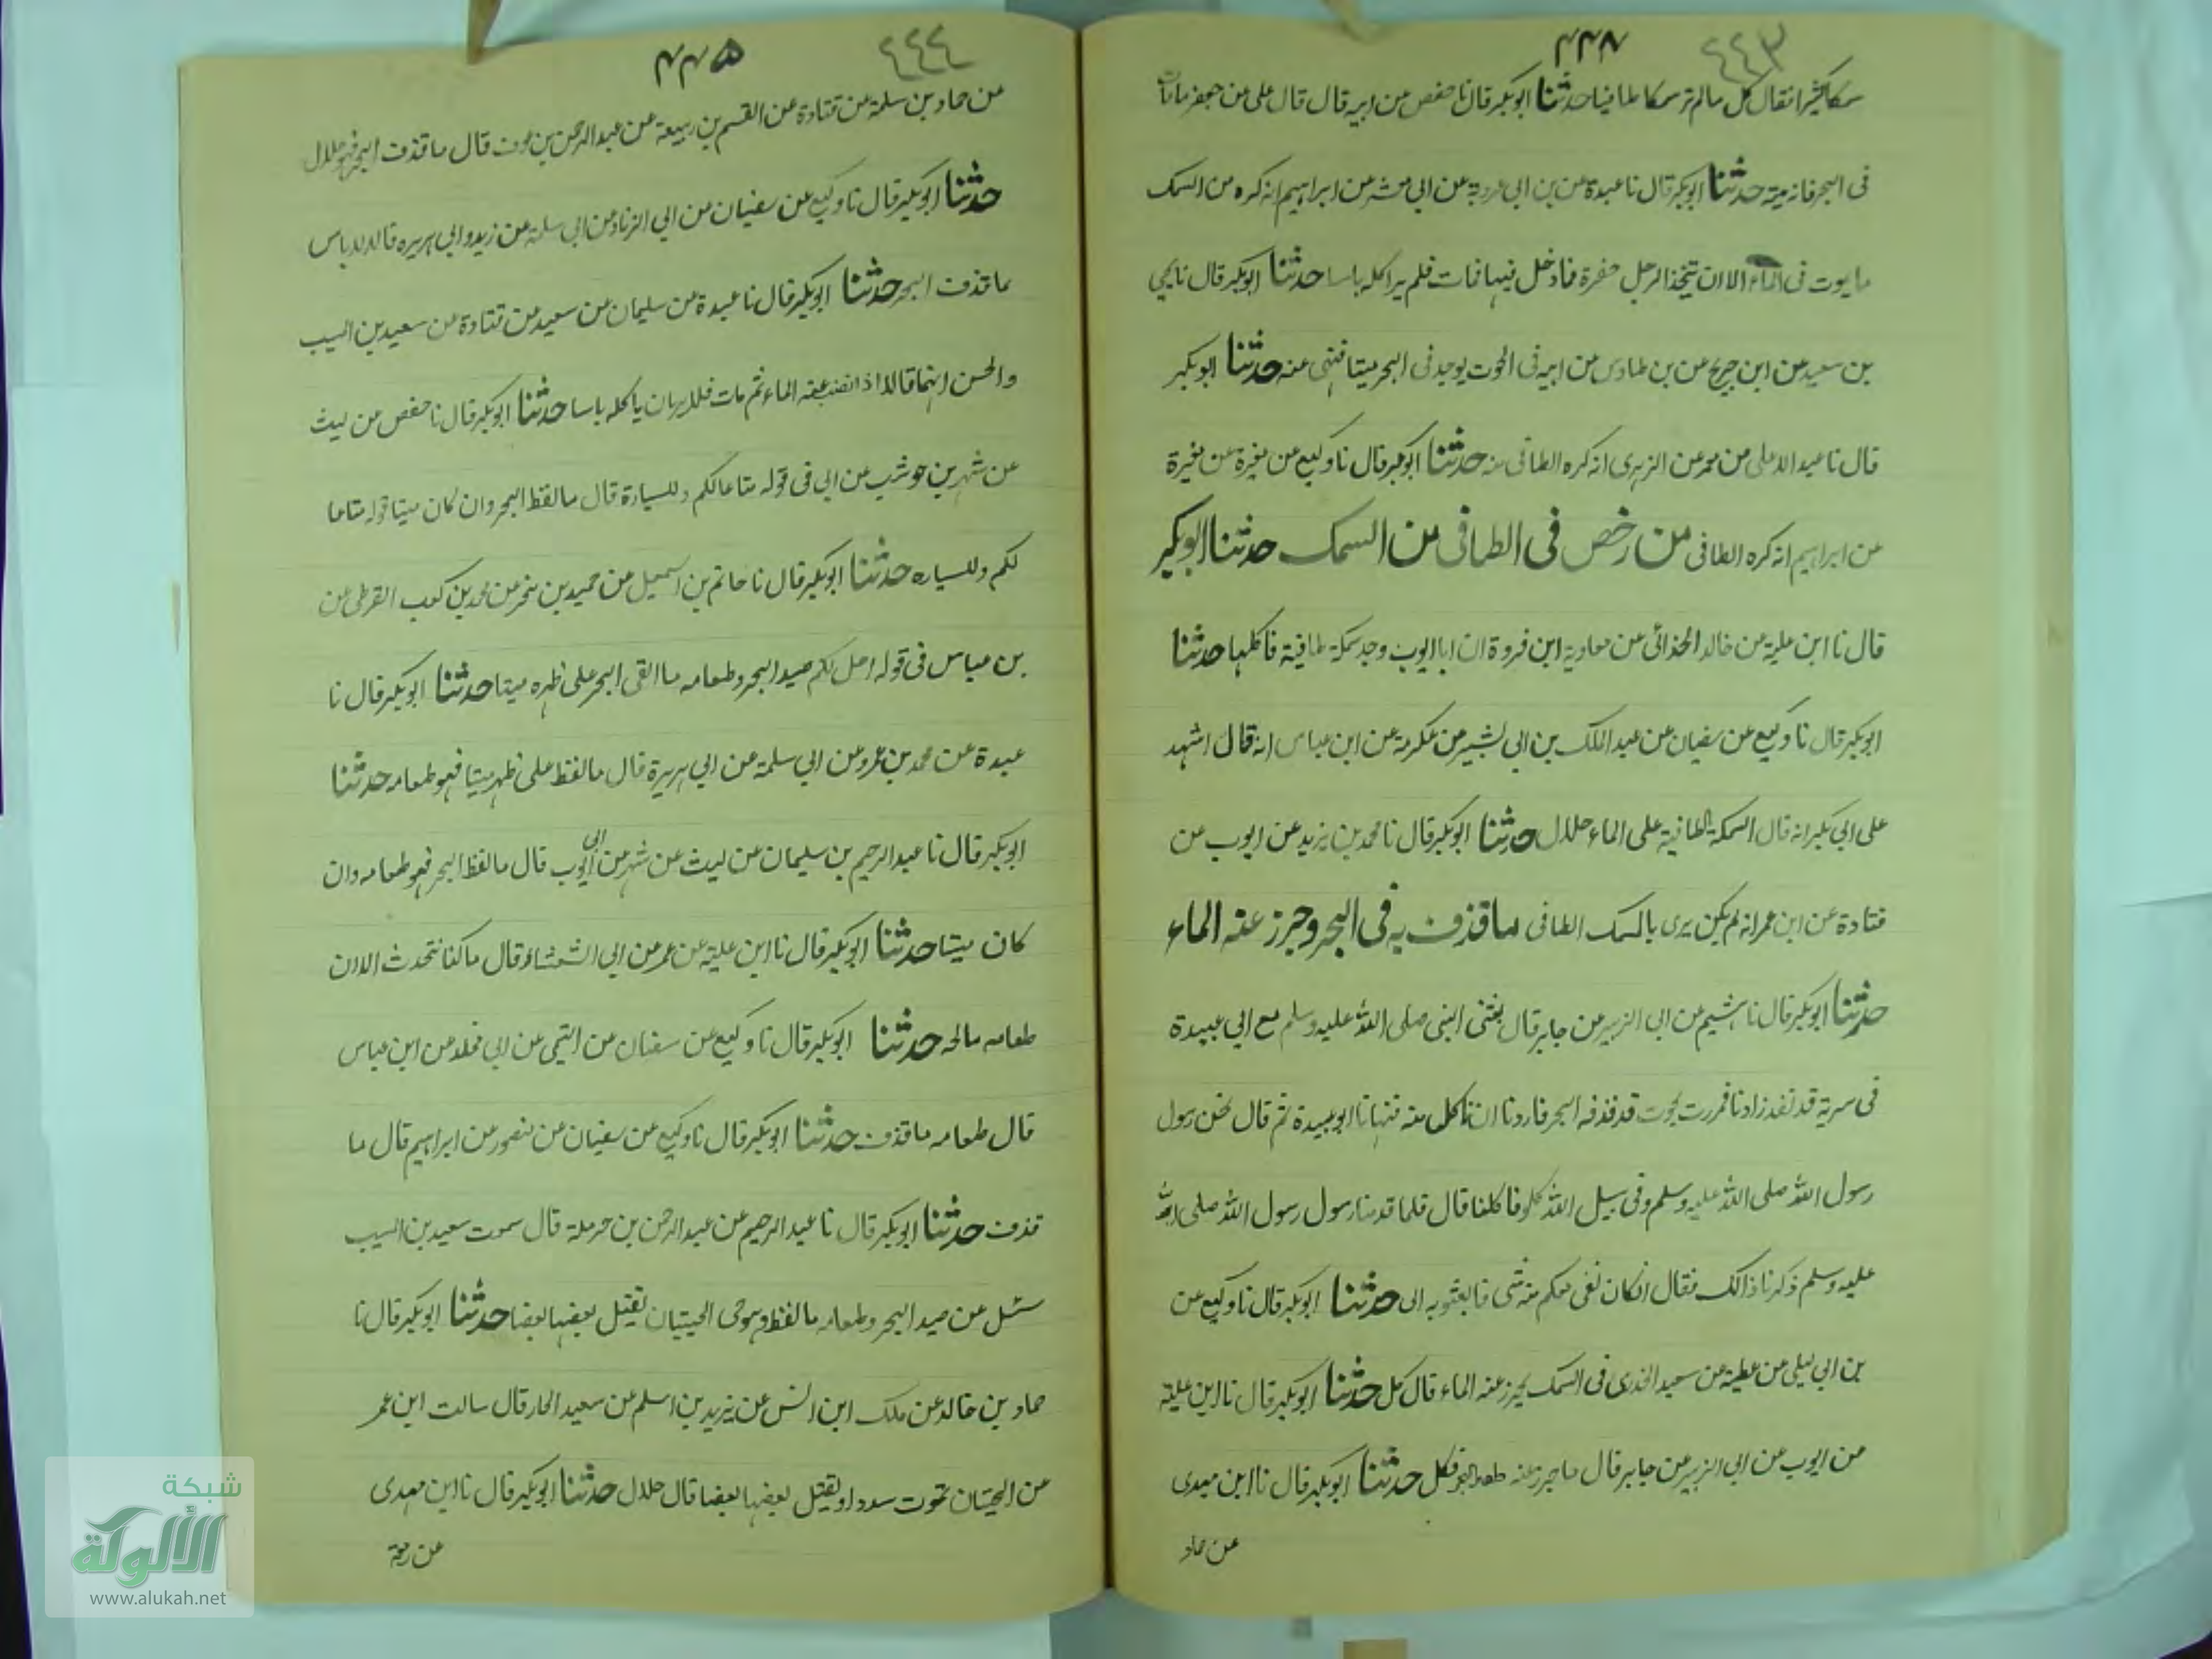 ٤٤٣
سمكا كثيرا فقال كل مالم تر سمكا طافيا حدثنا ابوبكر قال نا حفص عن جعفر عن ابيه قال قال على ما مات
فى البحر فانه ميتة حدثنا ابوبكر قال نا عبدة عن بن ابى عروبة عن ابى معشر عن ابراهيم انه كره من السمك
ما يموت فى الماء الا ان يتخذ الرجل حفرة فادخل فيها فمات فلم ير اكله باسا حدثنا ابوبكر قال نا يحي
بن سعيد عن ابن جريج عن بن طاوس عن ابيه فى الحوت يوجد فى البحر ميتا فنهى عنه حدثنا ابوبكر
قال نا عبد الاعلى عن معمر عن الزهرى انه كره الطافى منه حدثنا ابوبكر قال نا وكيع عن مغيرة عن مغيرة
عن ابراهيم انه كره الطافى من رخص فى الطافى من السمك حدثنا ابوبكر
قال نا ابن علية عن خالد الحذائى عن معاوية ابن فروة ان ابا ايوب وجد سمكة طافية فاكلها حدثنا
ابوبكر قال نا وكيع عن سفيان عن عبد الملك بن ابى بشير عن عكرمة عن ابن عباس انه قال اشهد
على ابى بكر انه قال السمكة الطافية على الماء حلال حدثنا ابوبكر قال نا محمد بن يزيد عن ايوب عن
قتادة عن ابن عمر انه لم يكن يرى بالسمك الطافى ما قذف به فى البحر وجزر عنه الماء
حدثنا ابوبكر قال نا هشيم عن ابى الزبير عن جابر قال بعثنى النبى صلى الله عليه وسلم مع ابى عبيدة
فى سرية قد نفد زادنا فمررت بحوت قد قذفه البحر فاردنا ان ناكل منه فنهانا ابو عبيدة ثم قال نحن رسول
رسول الله صلى الله عليه وسلم وفى سبيل الله كلوفا كلنا قال فلما قدمنا رسول رسول الله صلى الله
عليه وسلم ذكرنا ذالك فقال ان كان بقى معكم منه شى فابعثو به الى حدثنا ابوبكر قال نا وكيع عن
بن ابى ليلى عن عطية عن سعيد الخدرى فى السمك يجزر عنه الماء قال كل حدثنا ابوبكر قال نا ابن علية
عن ايوب عن ابى الزبير عن جابر قال ما جزر عنه البحر فكل حدثنا ابوبكر قال نا ابن مهدى
عن حماد
٤٤٤
٤٤٥
عن حماد بن سلمة عن قتادة عن القسم بن ربيعة عن عبد الرحمن بن عوف قال ما قذف البحر فهو حلال
حدثنا ابوبكر قال نا وكيع عن سفيان عن ابى الزناد عن ابى سلمة عن زيد وابى هريره قالا لا باس
بما قذف البحر حدثنا ابوبكر قال نا عبدة عن سليمان عن سعيد عن قتادة عن سعيد بن المسيب
والحسن انهما قالا اذا نضب عنه الماء ثم مات فلا يريان باكله باسا حدثنا ابوبكر قال نا حفص عن ليث
عن شهر بن حوشب عن ابى فى قوله متاعا لكم وللسيارة قال ما لفظ البحر وان كان ميتا قوله متاعا
لكم وللسياره حدثنا ابوبكر قال نا حاتم بن اسمعيل عن حميد بن صخر عن محمد بن كعب القرظى عن
بن عباس فى قوله احل لكم صيد البحر وطعامه ما القى البحر على ظهره ميتا حدثنا ابوبكر قال نا
عبدة عن محمد بن عمرو عن ابى سلمة عن ابى هريرة قال ما لفظ على ظهره ميتا فهو طعامه حدثنا
ابوبكر قال نا عبد الرحيم بن سليمان عن ليث عن شهر عن ابى ايوب قال ما لفظ البحر فهو طعامه وان
كان ميتا حدثنا ابوبكر قال نا ابن علية عن عمر عن ابى الشعثاء قال ما كنا نتحدث الا ان
طعامه مالحه حدثنا ابوبكر قال نا وكيع عن سفيان عن التيمى عن ابى مجلد عن ابن عباس
قال طعامه ما قذف حدثنا ابوبكر قال نا وكيع عن سفيان عن منصور عن ابراهيم قال ما
قذف حدثنا ابوبكر قال نا عبد الرحيم عن عبد الرحمن بن حرملة قال سمعت سعيد بن المسيب
سئل عن صيد البحر وطعامه ما لفظ وهو حى الحيتان تقتل بعضها بعضا حدثنا ابوبكر قال نا
حماد بن خالد عن ملك ابن انس عن زيد بن اسلم عن سعيد الجار قال سالت ابن عمر
عن الحيتان تموت سددا او يقتل بعضها بعضا قال حلال حدثنا ابوبكر قال نا ابن مهدى
عن زمعة
شبكة
الألوكة
www.alukah.net